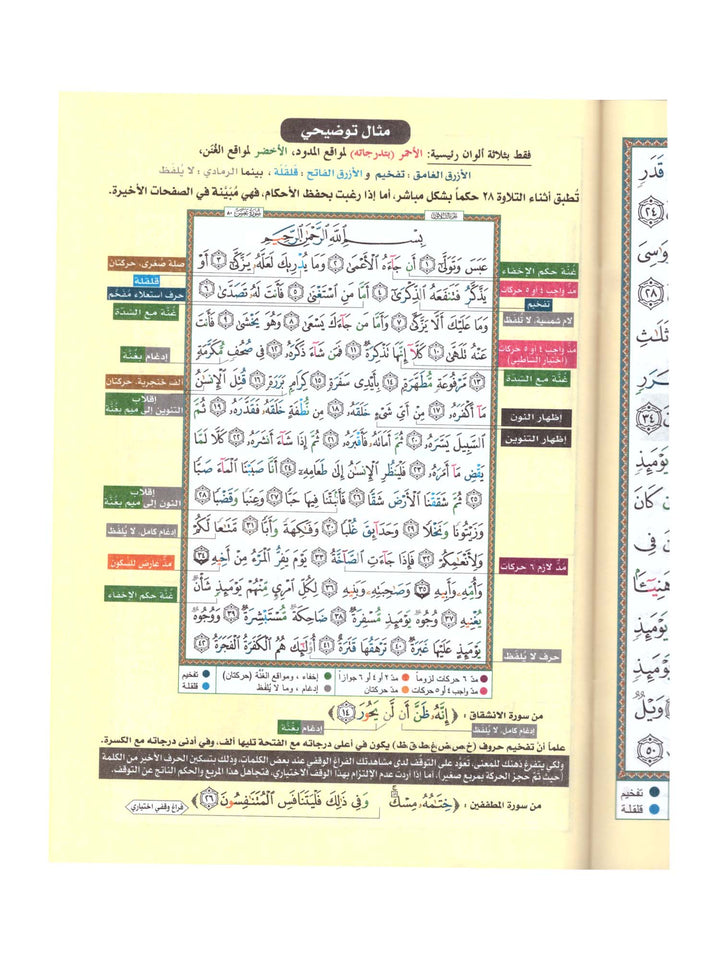 مثال توضيحي
فقط بثلاثة ألوان رئيسية: الأحمر (بتدرجاته) لمواقع المدود، الأخضر لمواقع الغُنَن،
الأزرق الغامق: تفخيم و الأزرق الفاتح: قلقلة، بينما الرمادي: لا يُلفَظ
تُطبق أثناء التلاوة ٢٨ حكماً بشكل مباشر، أما إذا رغبت بحفظ الأحكام، فهي مُبَيّنة في الصفحات الأخيرة.
سورة عبس ٨٠
بِسْمِ اللَّهِ الرَّحْمَٰنِ الرَّحِيمِ
عَبَسَ وَتَوَلَّىٰٓ ١ أَن جَآءَهُ ٱلْأَعْمَىٰ ٢ وَمَا يُدْرِيكَ لَعَلَّهُۥ يَزَّكَّىٰٓ ٣ أَوْ
يَذَّكَّرُ فَتَنفَعَهُ ٱلذِّكْرَىٰٓ ٤ أَمَّا مَنِ ٱسْتَغْنَىٰ ٥ فَأَنتَ لَهُۥ تَصَدَّىٰ ٦
وَمَا عَلَيْكَ أَلَّا يَزَّكَّىٰ ٧ وَأَمَّا مَن جَآءَكَ يَسْعَىٰ ٨ وَهُوَ يَخْشَىٰ ٩ فَأَنتَ
عَنْهُ تَلَهَّىٰ ١٠ كَلَّآ إِنَّهَا تَذْكِرَةٌ ١١ فَمَن شَآءَ ذَكَرَهُۥ ١٢ فِي صُحُفٍ مُّكَرَّمَةٍ
١٣ مَّرْفُوعَةٍ مُّطَهَّرَةٍۭ ١٤ بِأَيْدِي سَفَرَةٍ ١٥ كِرَامٍۭ بَرَرَةٍ ١٦ قُتِلَ ٱلْإِنسَٰنُ
مَآ أَكْفَرَهُۥ ١٧ مِنْ أَيِّ شَيْءٍ خَلَقَهُۥ ١٨ مِن نُّطْفَةٍ خَلَقَهُۥ فَقَدَّرَهُۥ ١٩ ثُمَّ
ٱلسَّبِيلَ يَسَّرَهُۥ ٢٠ ثُمَّ أَمَاتَهُۥ فَأَقْبَرَهُۥ ٢١ ثُمَّ إِذَا شَآءَ أَنشَرَهُۥ ٢٢ كَلَّا لَمَّا
يَقْضِ مَآ أَمَرَهُۥ ٢٣ فَلْيَنظُرِ ٱلْإِنسَٰنُ إِلَىٰ طَعَامِهِۦٓ ٢٤ أَنَّا صَبَبْنَا ٱلْمَآءَ صَبًّا
٢٥ ثُمَّ شَقَقْنَا ٱلْأَرْضَ شَقًّا ٢٦ فَأَنۢبَتْنَا فِيهَا حَبًّا ٢٧ وَعِنَبًا وَقَضْبًا ٢٨
وَزَيْتُونًا وَنَخْلًا ٢٩ وَحَدَآئِقَ غُلْبًا ٣٠ وَفَٰكِهَةً وَأَبًّا ٣١ مَّتَٰعًا لَّكُمْ
وَلِأَنْعَٰمِكُمْ ٣٢ فَإِذَا جَآءَتِ ٱلصَّآخَّةُ ٣٣ يَوْمَ يَفِرُّ ٱلْمَرْءُ مِنْ أَخِيهِ ٣٤
وَأُمِّهِۦ وَأَبِيهِ ٣٥ وَصَٰحِبَتِهِۦ وَبَنِيهِ ٣٦ لِكُلِّ ٱمْرِئٍ مِّنْهُمْ يَوْمَئِذٍ شَأْنٌ
يُغْنِيهِ ٣٧ وُجُوهٌ يَوْمَئِذٍ مُّسْفِرَةٌ ٣٨ ضَاحِكَةٌ مُّسْتَبْشِرَةٌ ٣٩ وَوُجُوهٌ
يَوْمَئِذٍ عَلَيْهَا غَبَرَةٌ ٤٠ تَرْهَقُهَا قَتَرَةٌ ٤١ أُو۟لَٰٓئِكَ هُمُ ٱلْكَفَرَةُ ٱلْفَجَرَةُ ٤٢
غُنَّة حكم الإخفاء
مدّ واجب ٤ أو ٥ حركات
تفخيم
لام شمسية، لا تُلفَظ
مدّ واجب ٤ أو ٥ حركات
(اختيار الشاطبي)
غُنَّة مع الشدّة
إظهار النون
إظهار التنوين
مَدّ لازم ٦ حركات
حرف لا يُلفَظ
صلة صغرى، حركتان
قلقلة
حرف استعلاء مُفخّم
غُنَّة مع الشدّة
إدغام بغُنَّة
ألف خنجرية، حركتان
إقلاب
التنوين إلى ميم بغُنَّة
إقلاب
النون إلى ميم بغُنَّة
إدغام كامل، لا يُلفَظ
مَدّ عارض للسكون
غُنَّة حكم الإخفاء
مدّ ٦ حركات لزوماً مدّ ٢ أو ٤ أو ٦ جوازاً إخفاء، ومواقع الغُنَّة (حركتان) تفخيم
مدّ واجب ٤ أو ٥ حركات مدّ حركتان إدغام، وما لا يُلفَظ قلقلة
من سورة الانشقاق: ﴿إِنَّهُۥ ظَنَّ أَن لَّن يَحُورَ ١٤﴾
إدغام كامل، لا يُلفَظ
إدغام بغُنَّة
علماً أنّ تفخيم حروف (خ،ص،ض،غ،ط،ق،ظ) يكون في أعلى درجاته مع الفتحة تليها ألف، وفي أدنى درجاته مع الكسرة.
ولكي يتفرغ ذهنك للمعنى، تعوَّد على التوقف لدى مشاهدتك الفراغ الوقفي عند بعض الكلمات، وذلك بتسكين الحرف الأخير من الكلمة
(حيث تمّ حجز الحركة بمربع صغير)، أما إذا أردت عدم الإلتزام بهذا الوقف الاختياري، فتجاهل هذا المربع والحكم الناتج عن التوقف.
من سورة المطففين: ﴿خِتَٰمُهُۥ مِسْكٌ وَفِي ذَٰلِكَ فَلْيَتَنَافَسِ ٱلْمُتَنَٰفِسُونَ ٢٦﴾
فراغ وقفي اختياري
قَدَرٍ
٢٤
٢٨
ثَلَٰثِ
٣٤
يَوْمَئِذٍ
كَانَ
فِي
هَنِيٓـًٔا
يَوْمَئِذٍ
يَوْمَئِذٍ
وَيْلٌ
٥٠
تفخيم
قلقلة